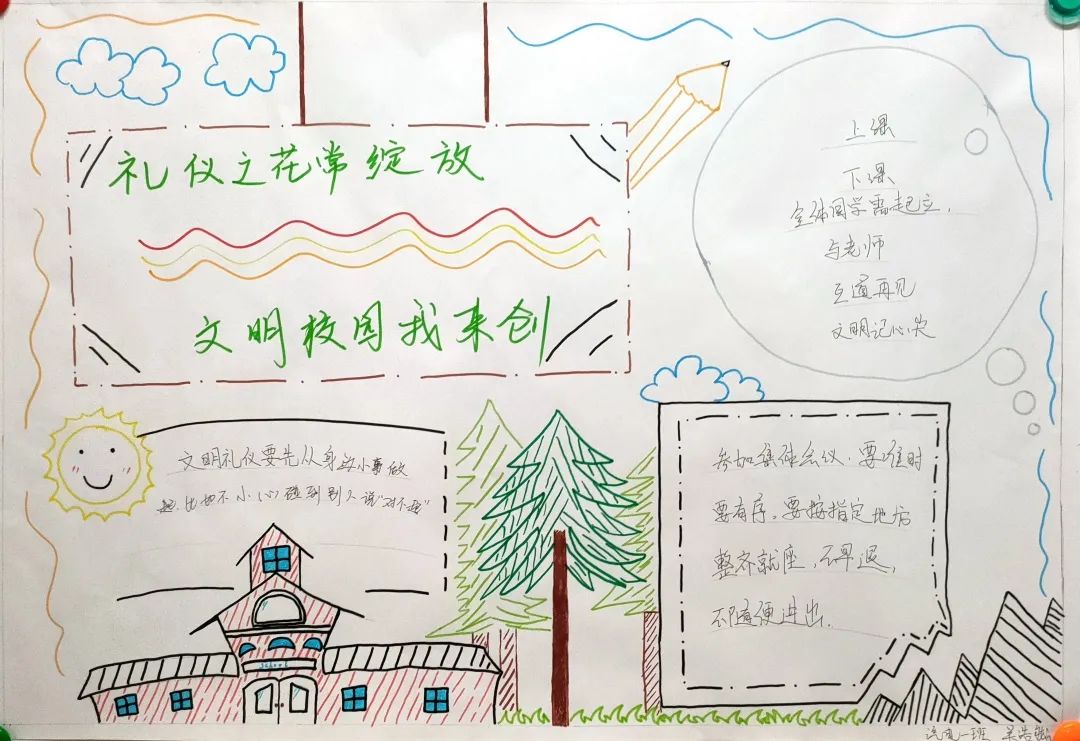 礼仪之花常绽放
文明校园我来创
上课
下课
全体同学需起立,
与老师
互道再见
文明记心尖
文明礼仪要先从身边小事做
起. 比如不小心碰到别人说"对不起"
School
参加集体会议,要准时
要有序。要按指定地点
整齐就座,不早退,
不随便进出.
一班